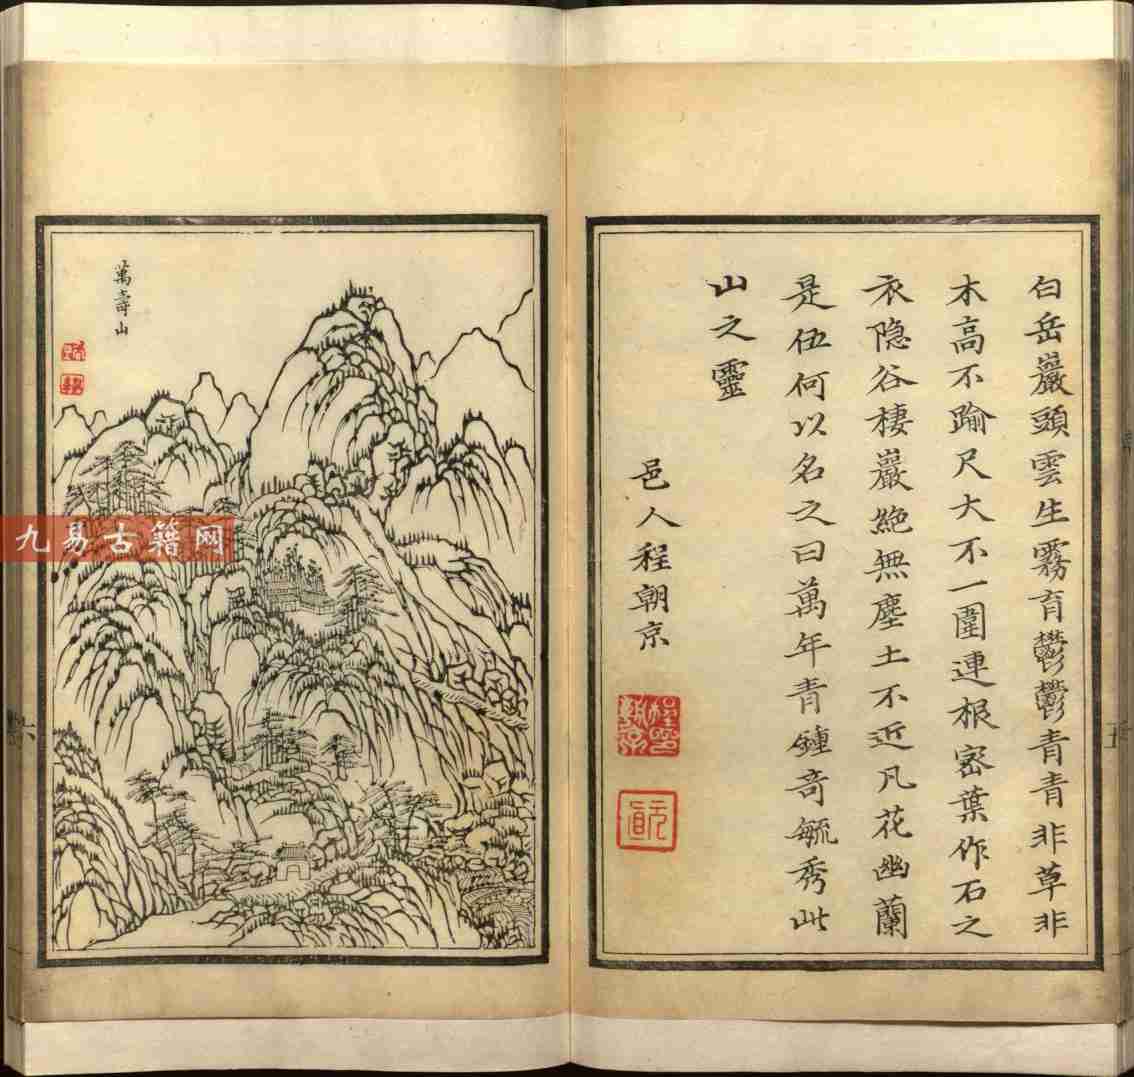 白岳巖頭雲生霧育鬱鬱青青非草非
木高不踰尺大不一圍連根密葉作石之
衣隐谷棲巖絶無塵土不近凡花幽蘭
是伍何以名之曰萬年青鍾奇毓秀此
山之靈
邑人程朝京
程朝京印
元直
萬壽山
九易古籍网